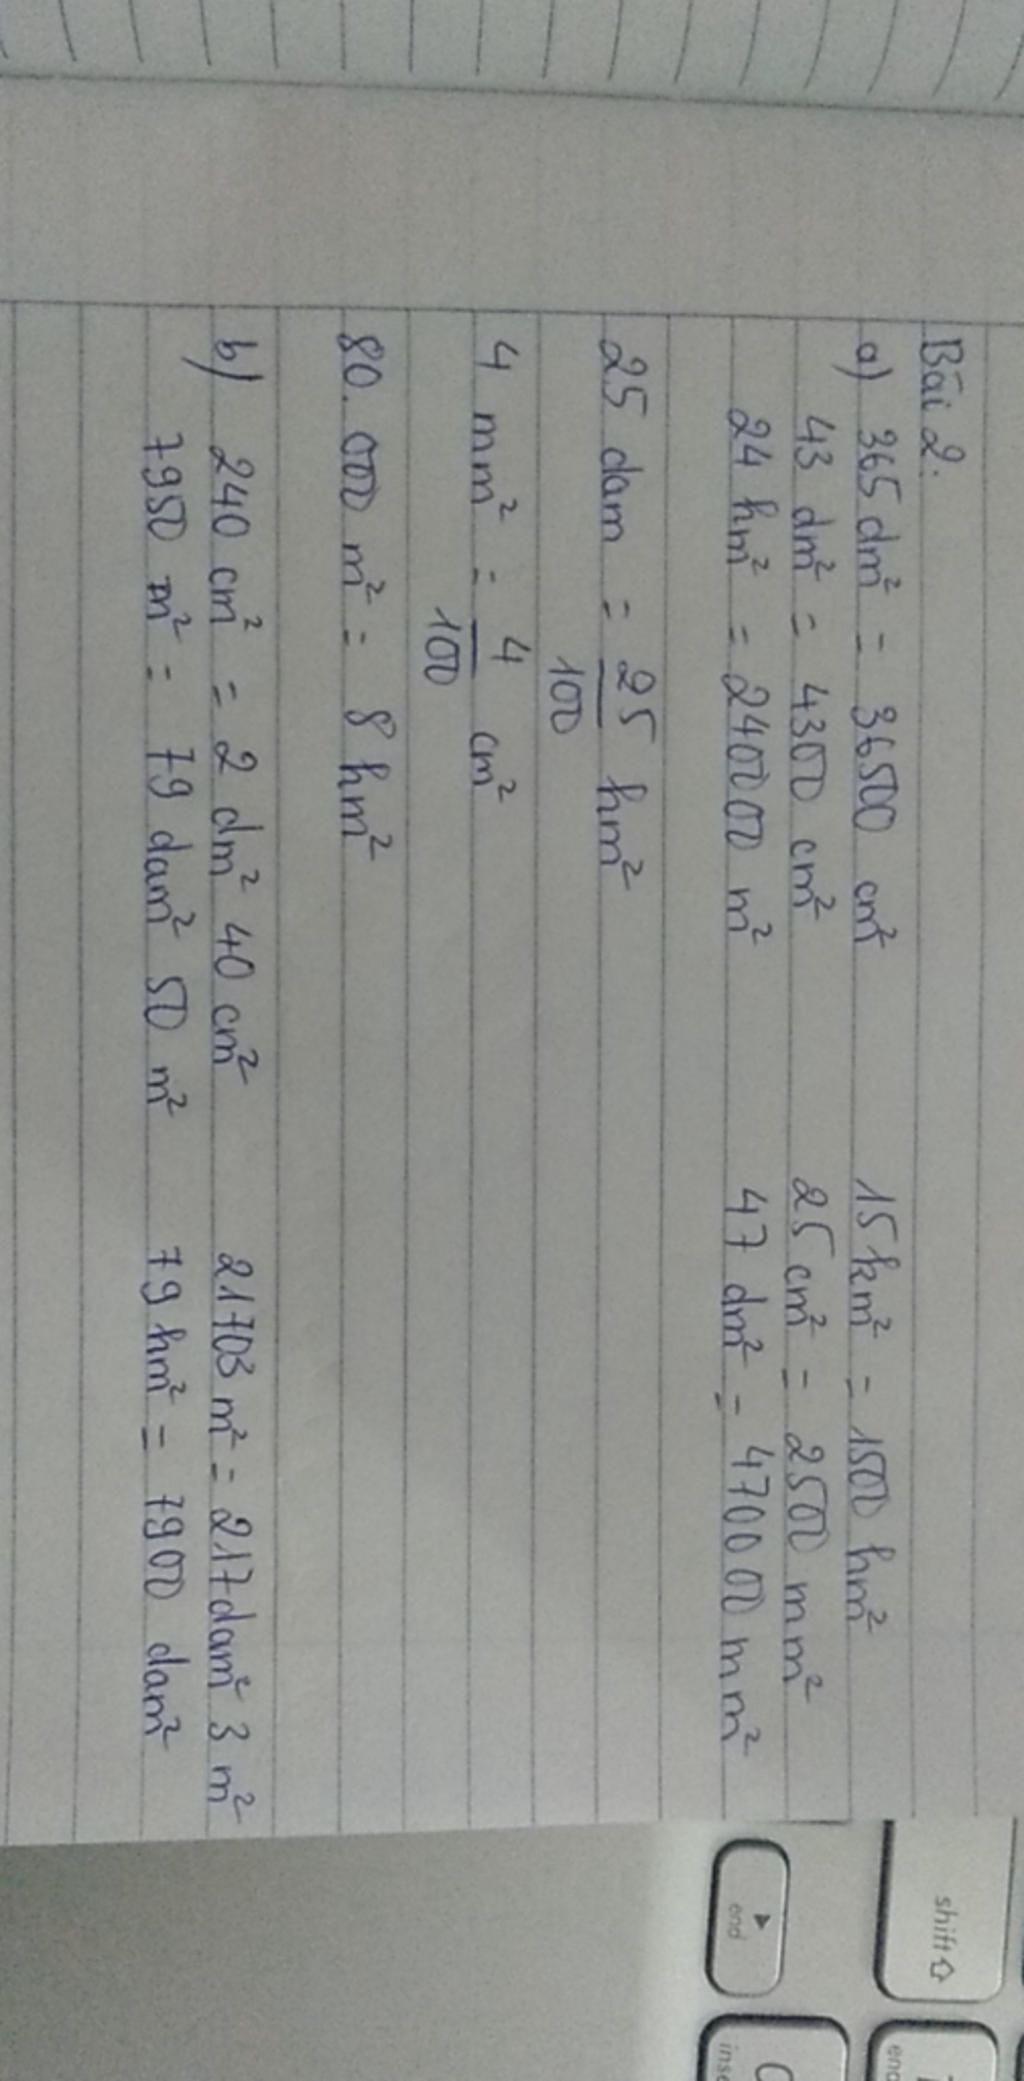 Bài 2:
a) 365 dm² = 36500 cm² 15 km² = 1500 hm²
43 dm² = 4300 cm² 25 cm² = 2500 mm²
24 hm² = 240000 m² 47 dm² = 470000 mm²
25 dam = 25/100 hm²
4 mm² = 4/100 cm²
80.000 m² = 8 hm²
b) 240 cm² = 2 dm² 40 cm² 21703 m² = 217 dam² 3 m²
7950 m² = 79 dam² 50 m² 79 hm² = 7900 dam²
shift⇧
end
end